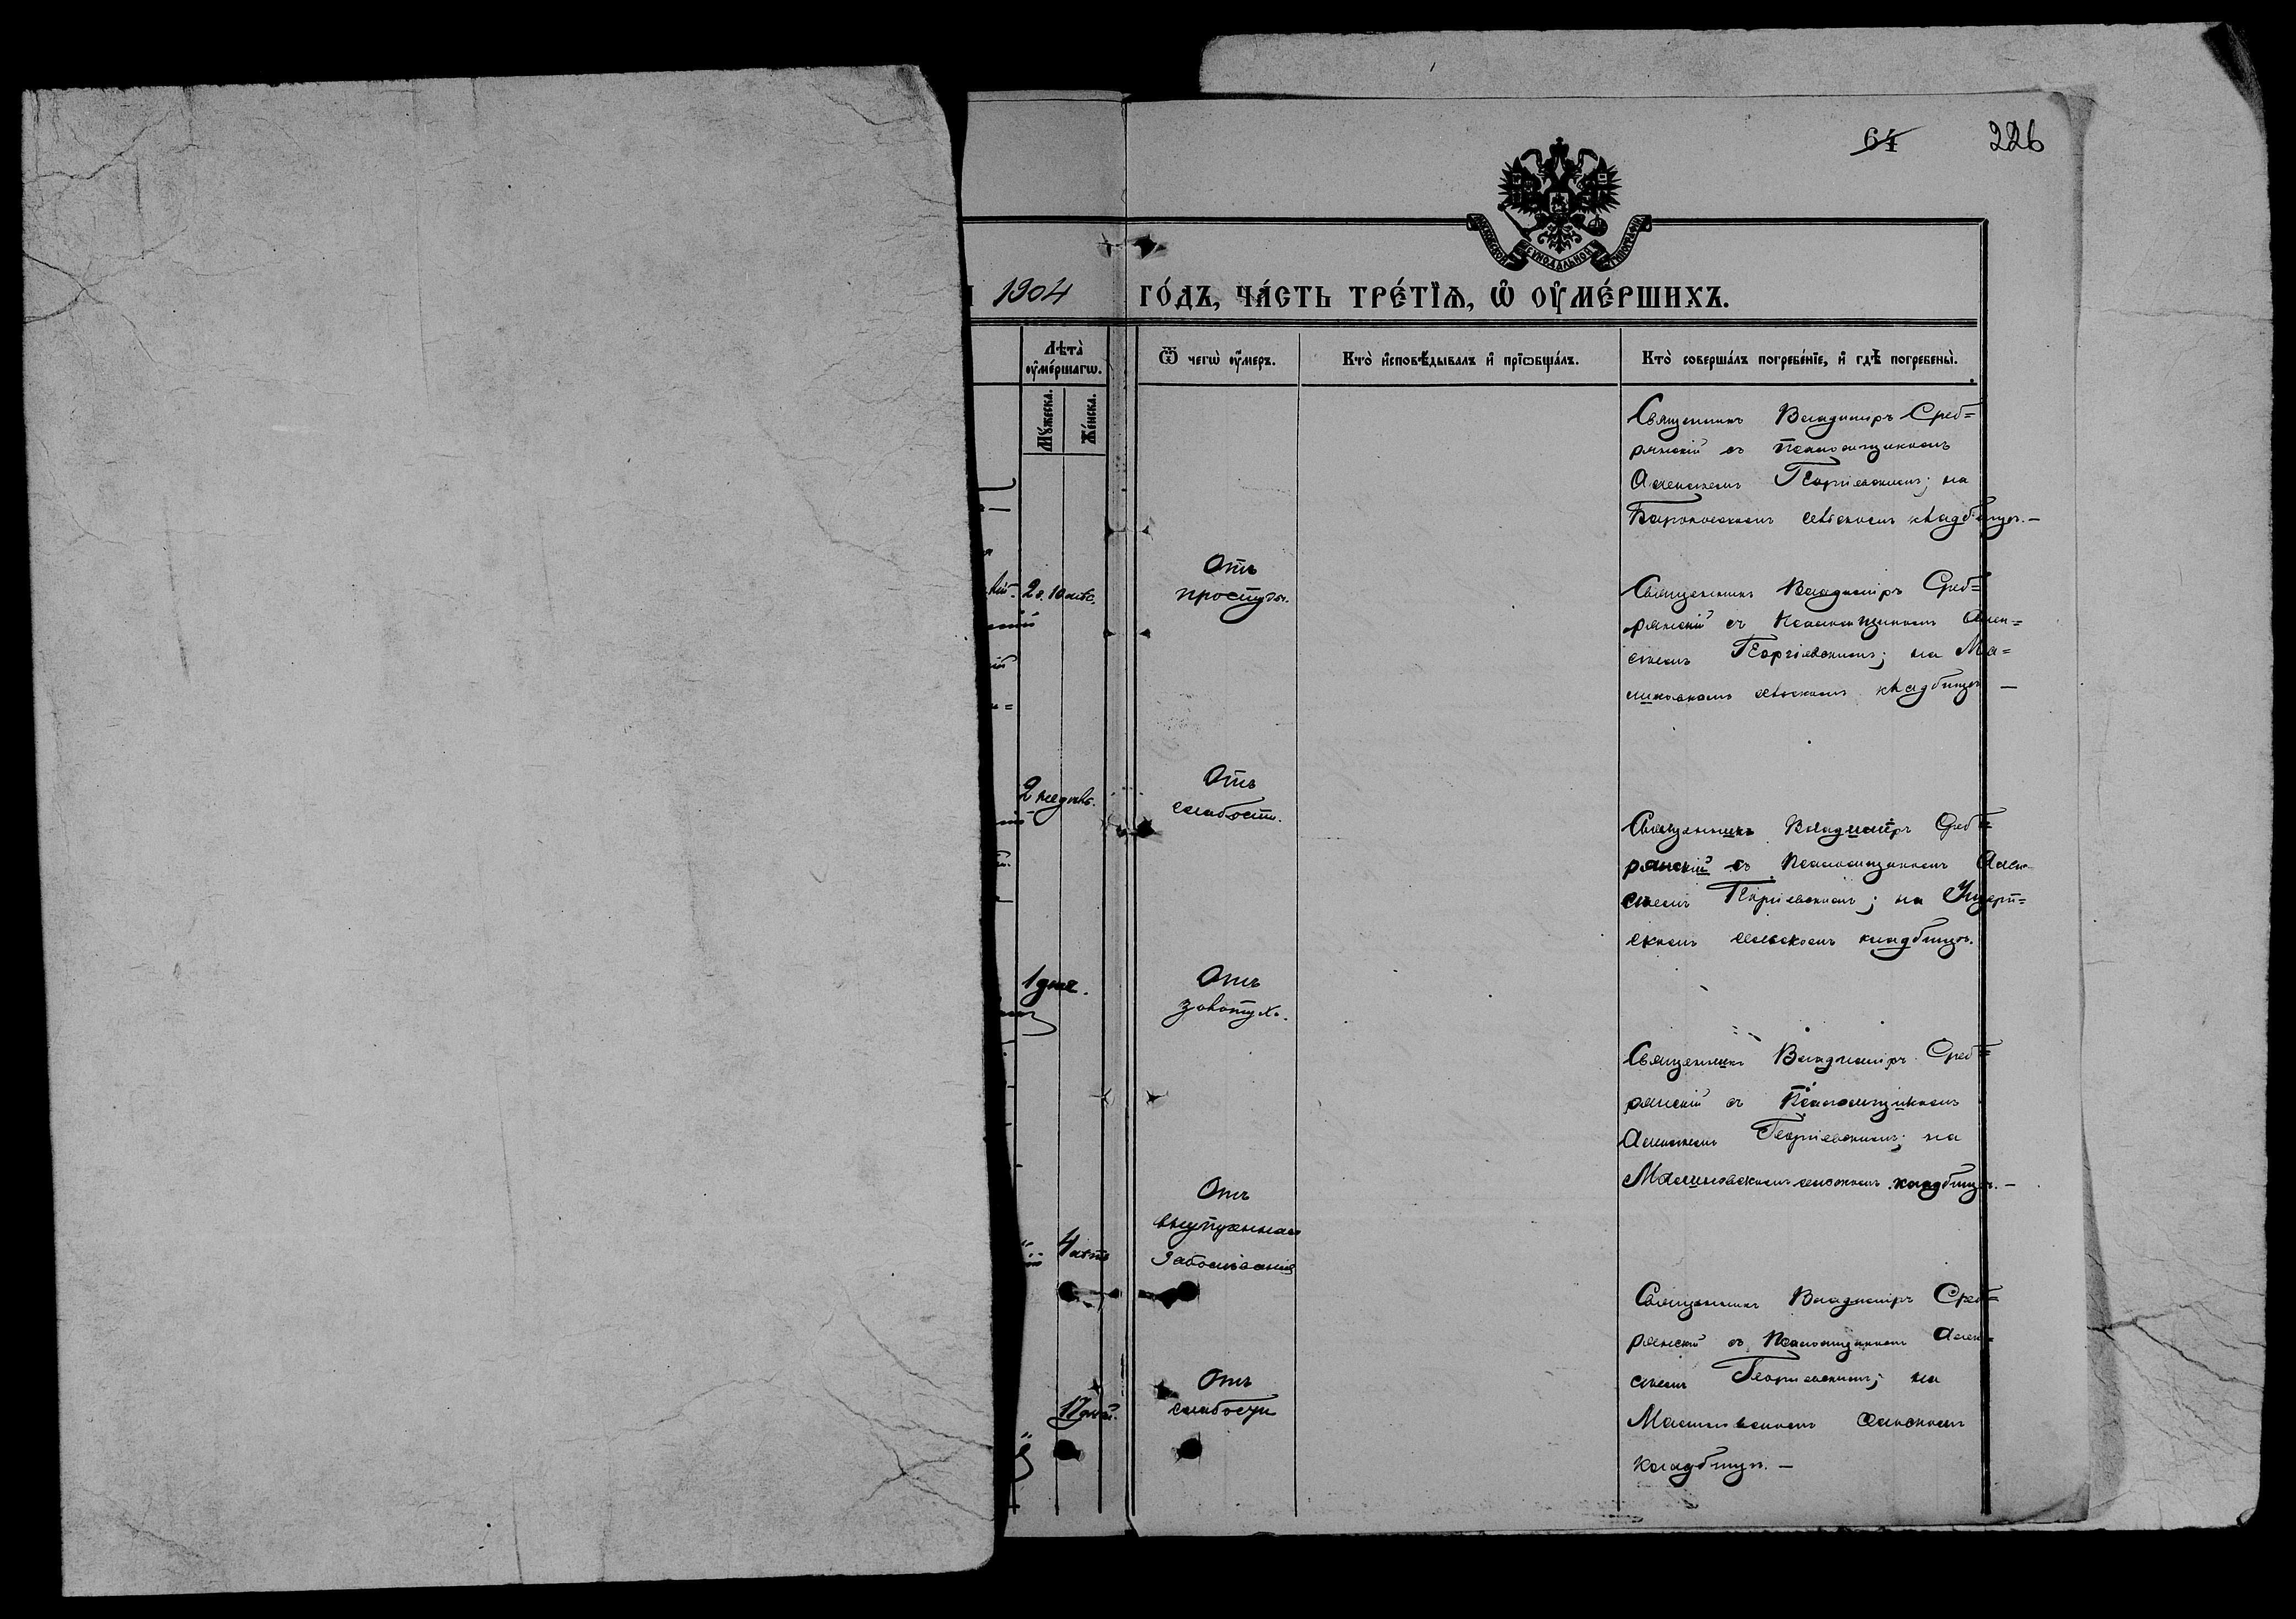 64 226
МОСКОВСКОЙ СУНОДАЛЬНОЙ ТИПОГРАФІИ
1904 го́дъ, ча́сть тре́тїѧ, ѡ҆ ᲂу҆ме́ршихъ.
Лѣта̀ ᲂу҆ме́ршагѡ.
Мꙋ́жеска.
Же́нска.
Ѿ чегѡ̀ ᲂу҆́меръ.
Кто̀ и҆сповѣ́дывалъ и҆ прїѻбща́лъ.
Кто̀ соверша́лъ погребе́нїе, и҆ гдѣ̀ погребены̀.
Священникъ Владиміръ Среб=
рянскій съ Псаломщикомъ
Алексѣемъ Георгіевскимъ; на
сельскомъ кладбищѣ.—
2 г. 10 мѣс.
Отъ
простуды.
Священникъ Владиміръ Среб=
рянскій съ Псаломщикомъ Алек=
сѣемъ Георгіевскимъ; на Ма=
сельскомъ кладбищѣ —
2 недѣль.
Отъ
слабости.
Священникъ Владиміръ Среб=
рянскій съ Псаломщикомъ Алек
сѣемъ Георгіевскимъ; на
скомъ сельскомъ кладбищѣ.
1 дня.
Отъ
Священникъ Владиміръ Среб=
рянскій съ Псаломщикомъ
Алексѣемъ Георгіевскимъ; на
сельскомъ кладбищѣ.—
4 лѣтъ
Отъ
внутренняго
заболѣванія
Священникъ Владиміръ Среб=
рянскій съ Псаломщикомъ Алек=
сѣемъ Георгіевскимъ; на
сельскомъ
кладбищѣ.—
17 дней.
Отъ
слабости